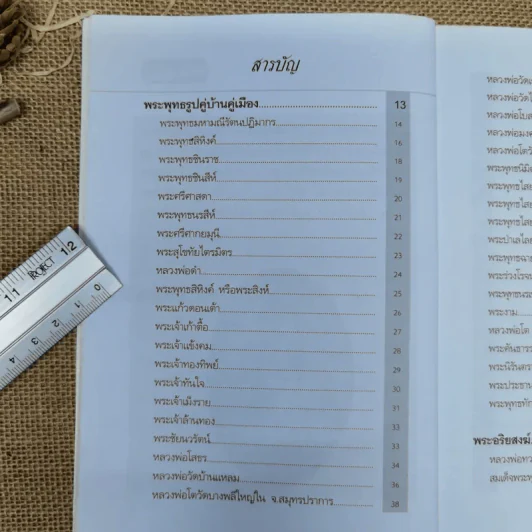 สารบัญ
พระพุทธรูปคู่บ้านคู่เมือง 13
พระพุทธมหามณีรัตนปฏิมากร 14
พระพุทธสิหิงค์ 16
พระพุทธชินราช 18
พระพุทธชินสีห์ 19
พระศรีศาสดา 20
พระพุทธนรสีห์ 21
พระศรีศากยมุนี 22
พระสุโขทัยไตรมิตร 23
หลวงพ่อดำ 24
พระพุทธสิหิงค์ หรือพระสิงห์ 25
พระแก้วดอนเต้า 26
พระเจ้าเก้าตื้อ 27
พระเจ้าแข้งคม 28
พระเจ้าทองทิพย์ 29
พระเจ้าทันใจ 30
พระเจ้าเม็งราย 31
พระเจ้าล้านทอง 33
พระชัยนวรัตน์ 33
หลวงพ่อโสธร 34
หลวงพ่อวัดบ้านแหลม 36
หลวงพ่อโตวัดบางพลีใหญ่ใน จ.สมุทรปราการ 38
หลวงพ่อโต
พระพุทธนิมิ
พระพุทธไสย
พระพุทธไสย
พระพุทธไสย
พระป่าเลไลย
พระพุทธฉาย
พระร่วงโรจน
พระพุทธนระ
พระงาม
หลวงพ่อโต
พระคันธาร
พระนิรันตร
พระประธาน
พระพุทธทัก
พระอริยสงฆ์
หลวงพ่อทว
สมเด็จพระพ
PROJECT
12
11
0
1
2
3
4